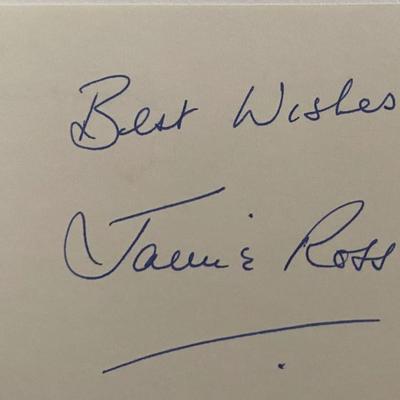 Best Wishes
Jamie Ross